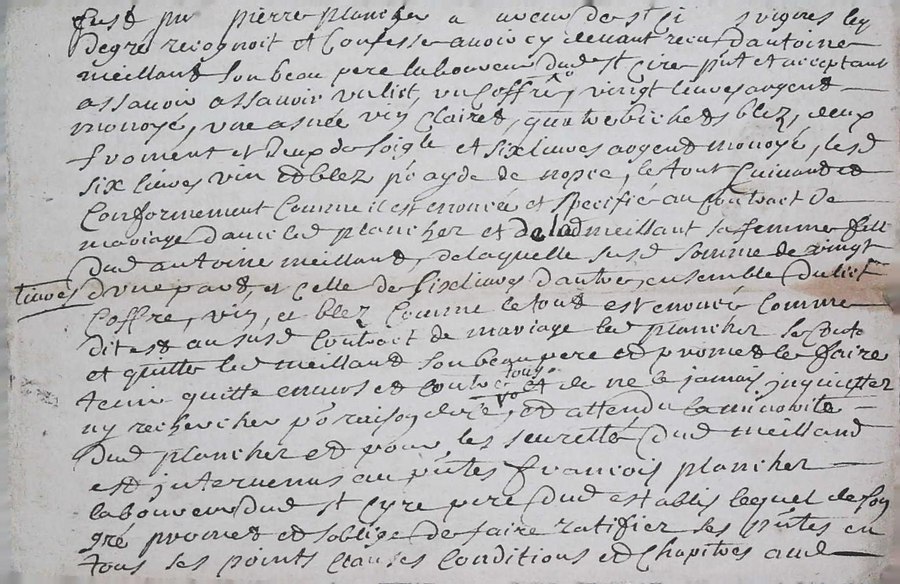 pierre plancher a
degré recognoit et Confesse avoir cy devant receu d'antoine
meilland son beau pere laboureur dud st Cire pnt et acceptant
assavoir assavoir un lict, un Coffre, vingt livres argent
monoyé, une asnée vin Claired, quatre bicheds blez, deux
froment et deux de soigle et six livres argent monoyé, lesd
six livres vin et blez p̃ ayde de nopce, le tout
Conformement Comme il est enoncé et specifié au Contract de
mariage d'ance led plancher et de lad meilland sa femme fille
dud antoine meilland, de laquelle susd somme de vingt
livres d'une pard, et celle de six livres d'autre, ensemble du lict
Coffre, vin, et blez Comme le tout est enoncé Comme
dit est au susd Contract de mariage led plancher se Conte
et quitte led meilland son beau pere et promet le faire
tenir quitte envers et Contre tous et de ne le jamais inquieter
ny rechercher p̃ raison de ce, et attendu la minorité
dud plancher et pour les seurettés dud meilland
est intervenus au pñtes francois plancher
laboureur dud st Cyre pere dud establis lequel de son
gré promet et soblige de faire ratifier les pñtes en
tous ses points clauses Conditions et Chapitres aud